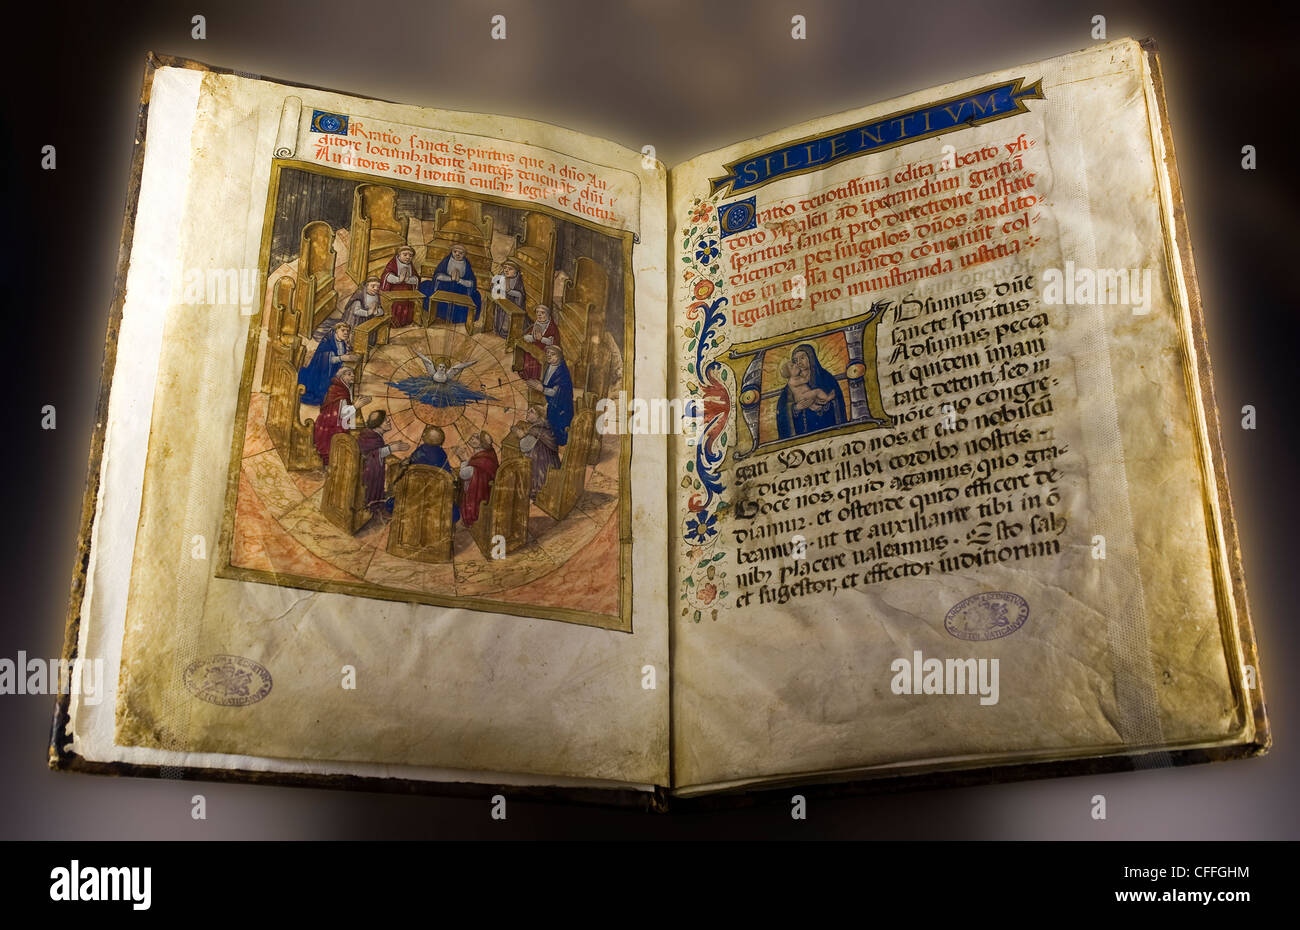 Oratio sancti Spiritus que a dño Au
ditore locumhabente anteq̃ deueniat dñi
Auditores ad Iuditiũ causar̃ legit᷑ et dicitur
SILLENTIVM
Oratio deuotissima edita a beato ysi
doro yspaleñ ad īperandum gratiam
spiritus sancti pro directione iustitie
dicenda per singulos dños audito-
res in missa quando cōueniũt col
legialiter pro ministranda iustitia
ADsumus dñe
sancte spiritus
Adsumus pecca
ti quidem imani
tate detenti, sed in
nõie tuo congre
gati Veni ad nos et esto nobiscũ
dignare illabi cordibus nostris
Doce nos quid agamus, quo gra
diamur et ostende quid efficere de
beamus ut te auxiliante tibi in õ
nibꝫ placere valeamus. Esto salꝰ
et sugestor, et effector iuditiorum
ARCHIVVM SECRETVM
APOSTOL VATICANVM
alamy
alamy
Image ID: CFFGHM
www.alamy.com